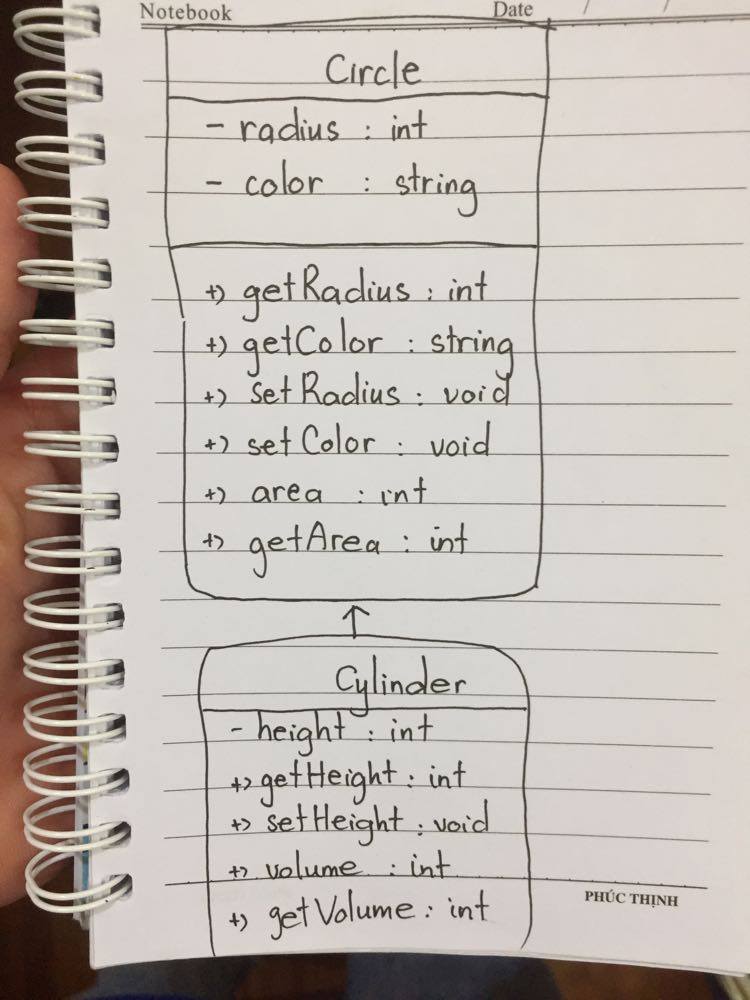 Notebook Date / /
Circle
- radius : int
- color : string
+) getRadius : int
+) getColor : string
+) setRadius : void
+) setColor : void
+) area : int
+) getArea : int
Cylinder
- height : int
+) getHeight : int
+) setHeight : void
+) volume : int
+) getVolume : int
PHÚC THỊNH